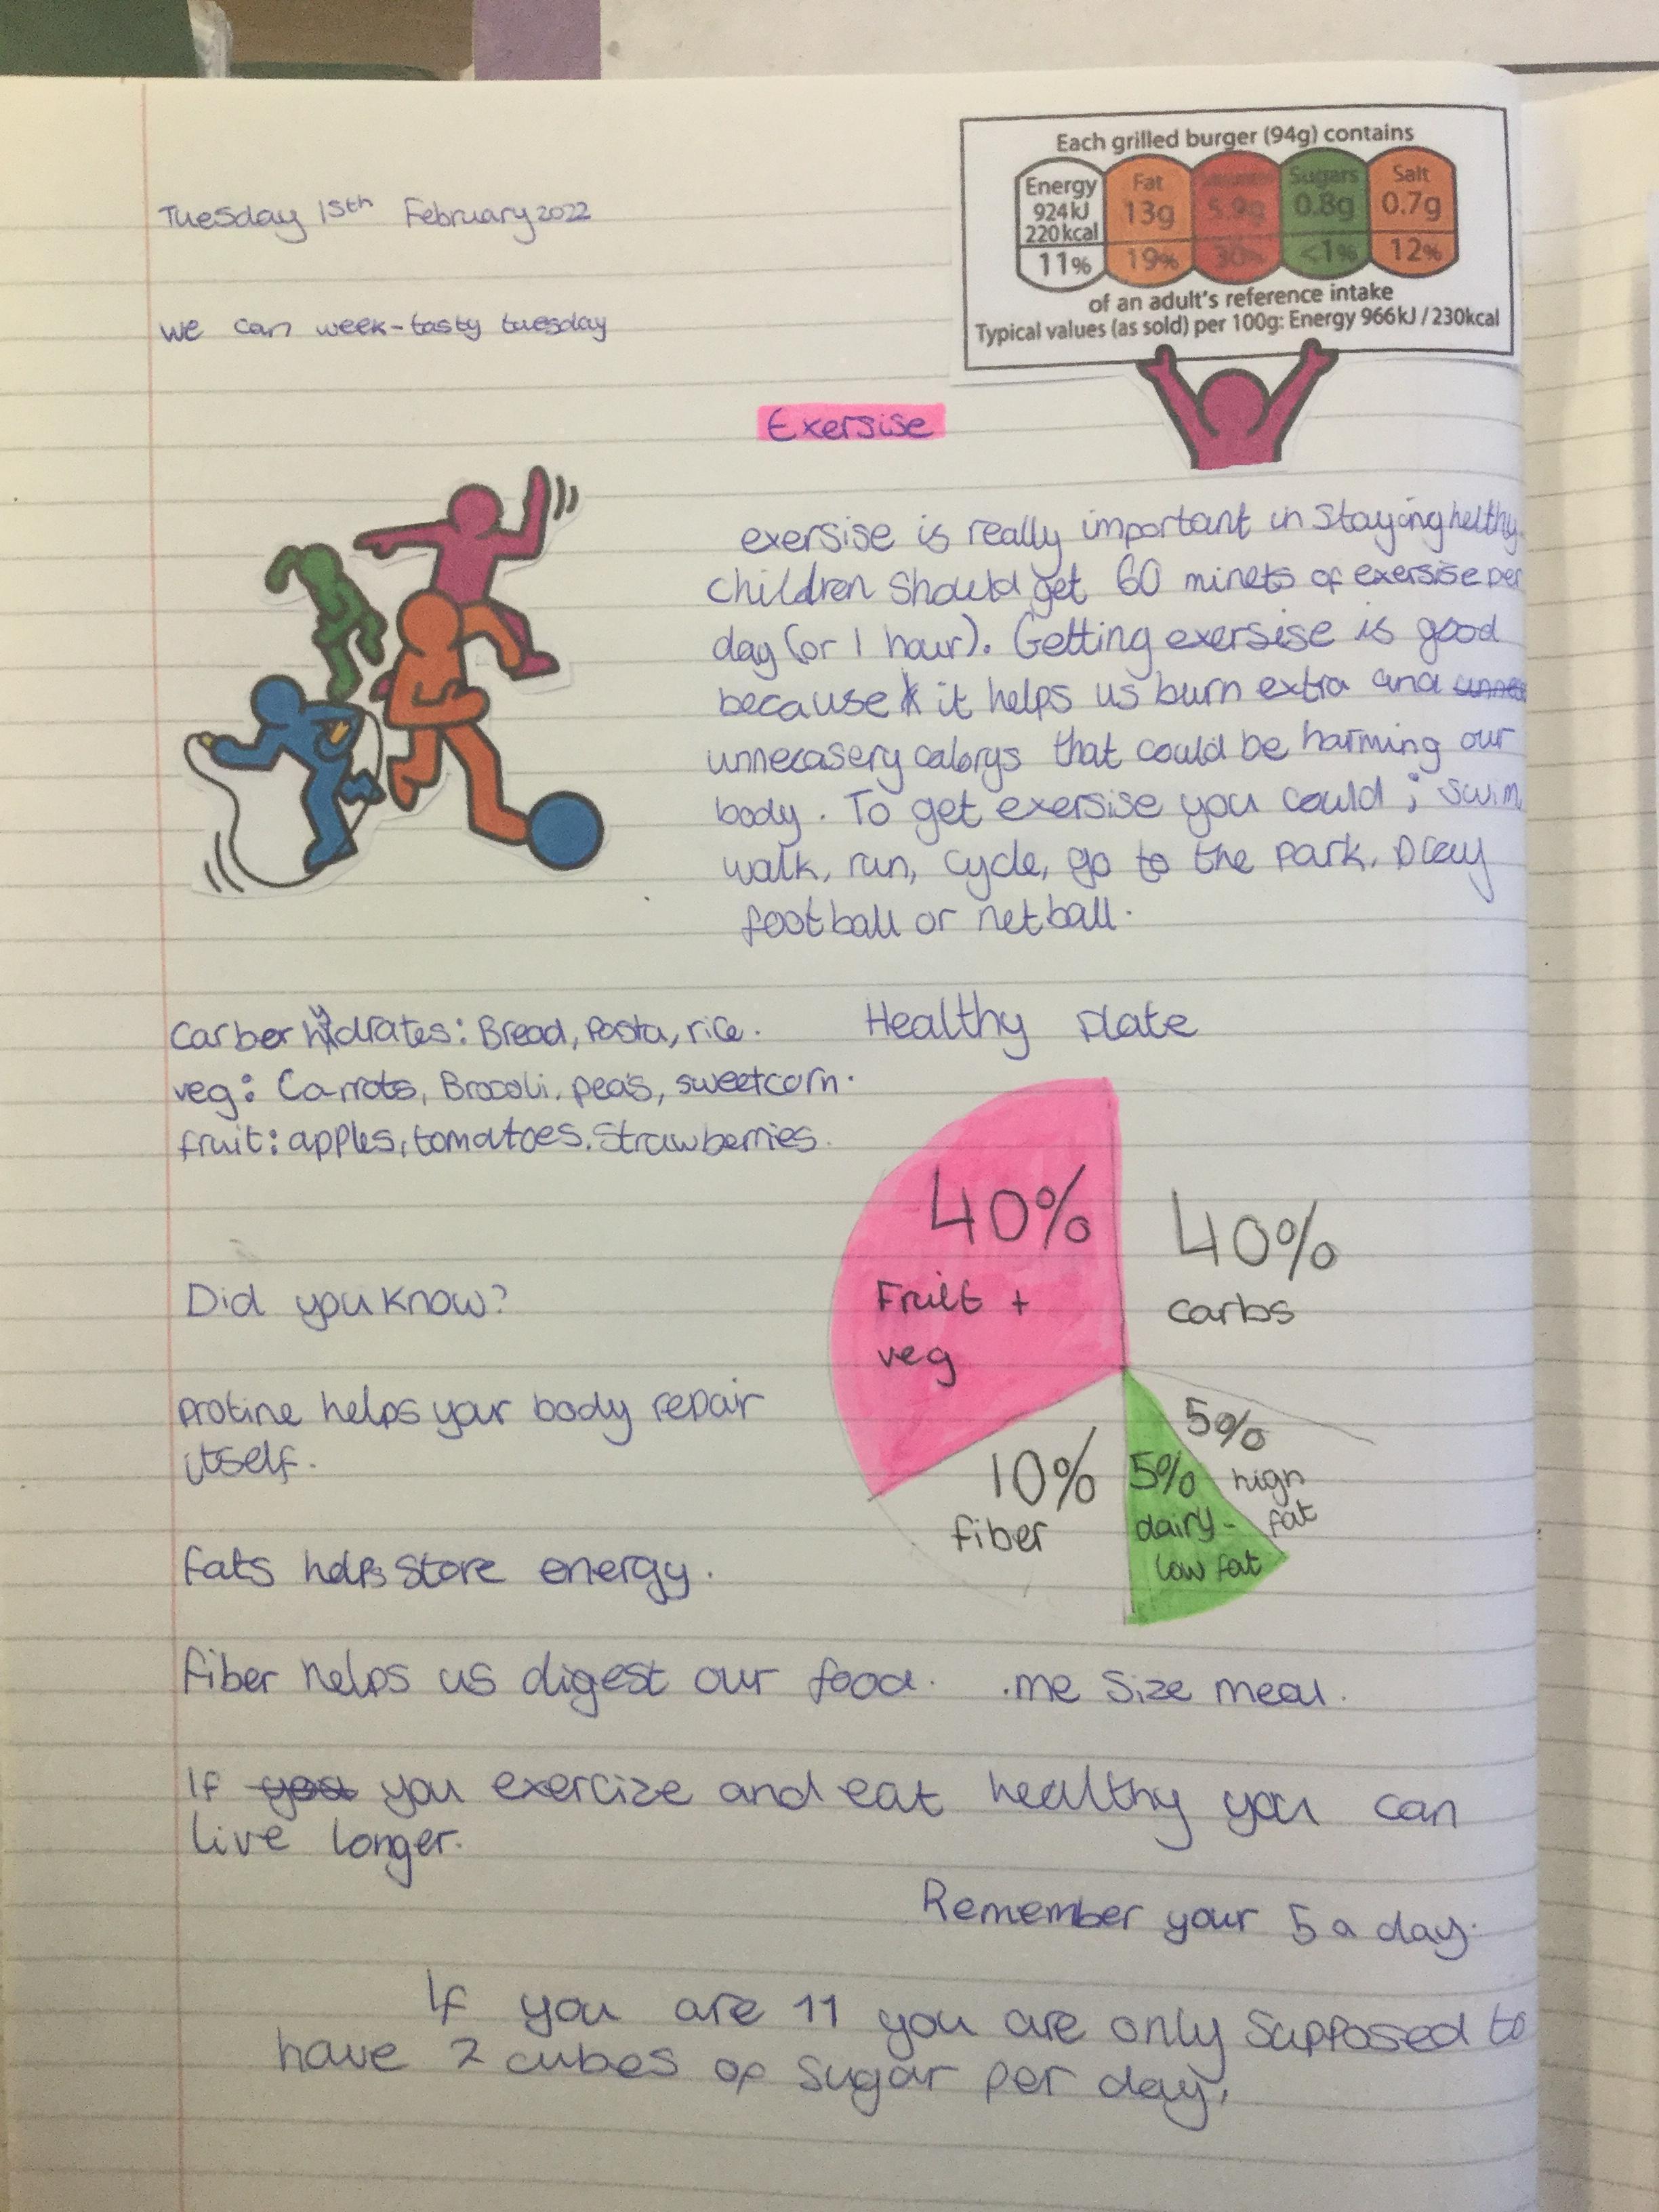 Each grilled burger (94g) contains
Energy 924kJ 220kcal 11%
Fat 13g 19%
5.9g 30%
Sugars 0.8g <1%
Salt 0.7g 12%
of an adult's reference intake
Typical values (as sold) per 100g: Energy 966kJ / 230kcal
Tuesday 15th February 2022
we can week-tasty tuesday
Exersise
exersise is really important in Staying helthy.
children should get 60 minets of exersise per
day (or 1 hour). Getting exersise is good
because it helps us burn extra and
unnecasery calorys that could be harming our
body. To get exersise you could ; swim,
walk, run, cycle, go to the park, play
football or netball.
Carberhydrates: Bread, Pasta, rice.
veg: Carrots, Brocoli, peas, sweetcorn.
fruit: apples, tomatoes. Strawberries.
Healthy plate
40%
Fruit +
veg
40%
carbs
5%
high
fat
5%
dairy-
low fat
10%
fiber
Did you know?
protine helps your body repair
itself.
fats helps store energy.
fiber helps us digest our food.
.me size meal.
If you exercize and eat healthy you can
live longer.
Remember your 5 a day.
If you are 11 you are only supposed to
have 2 cubes of sugar per day.